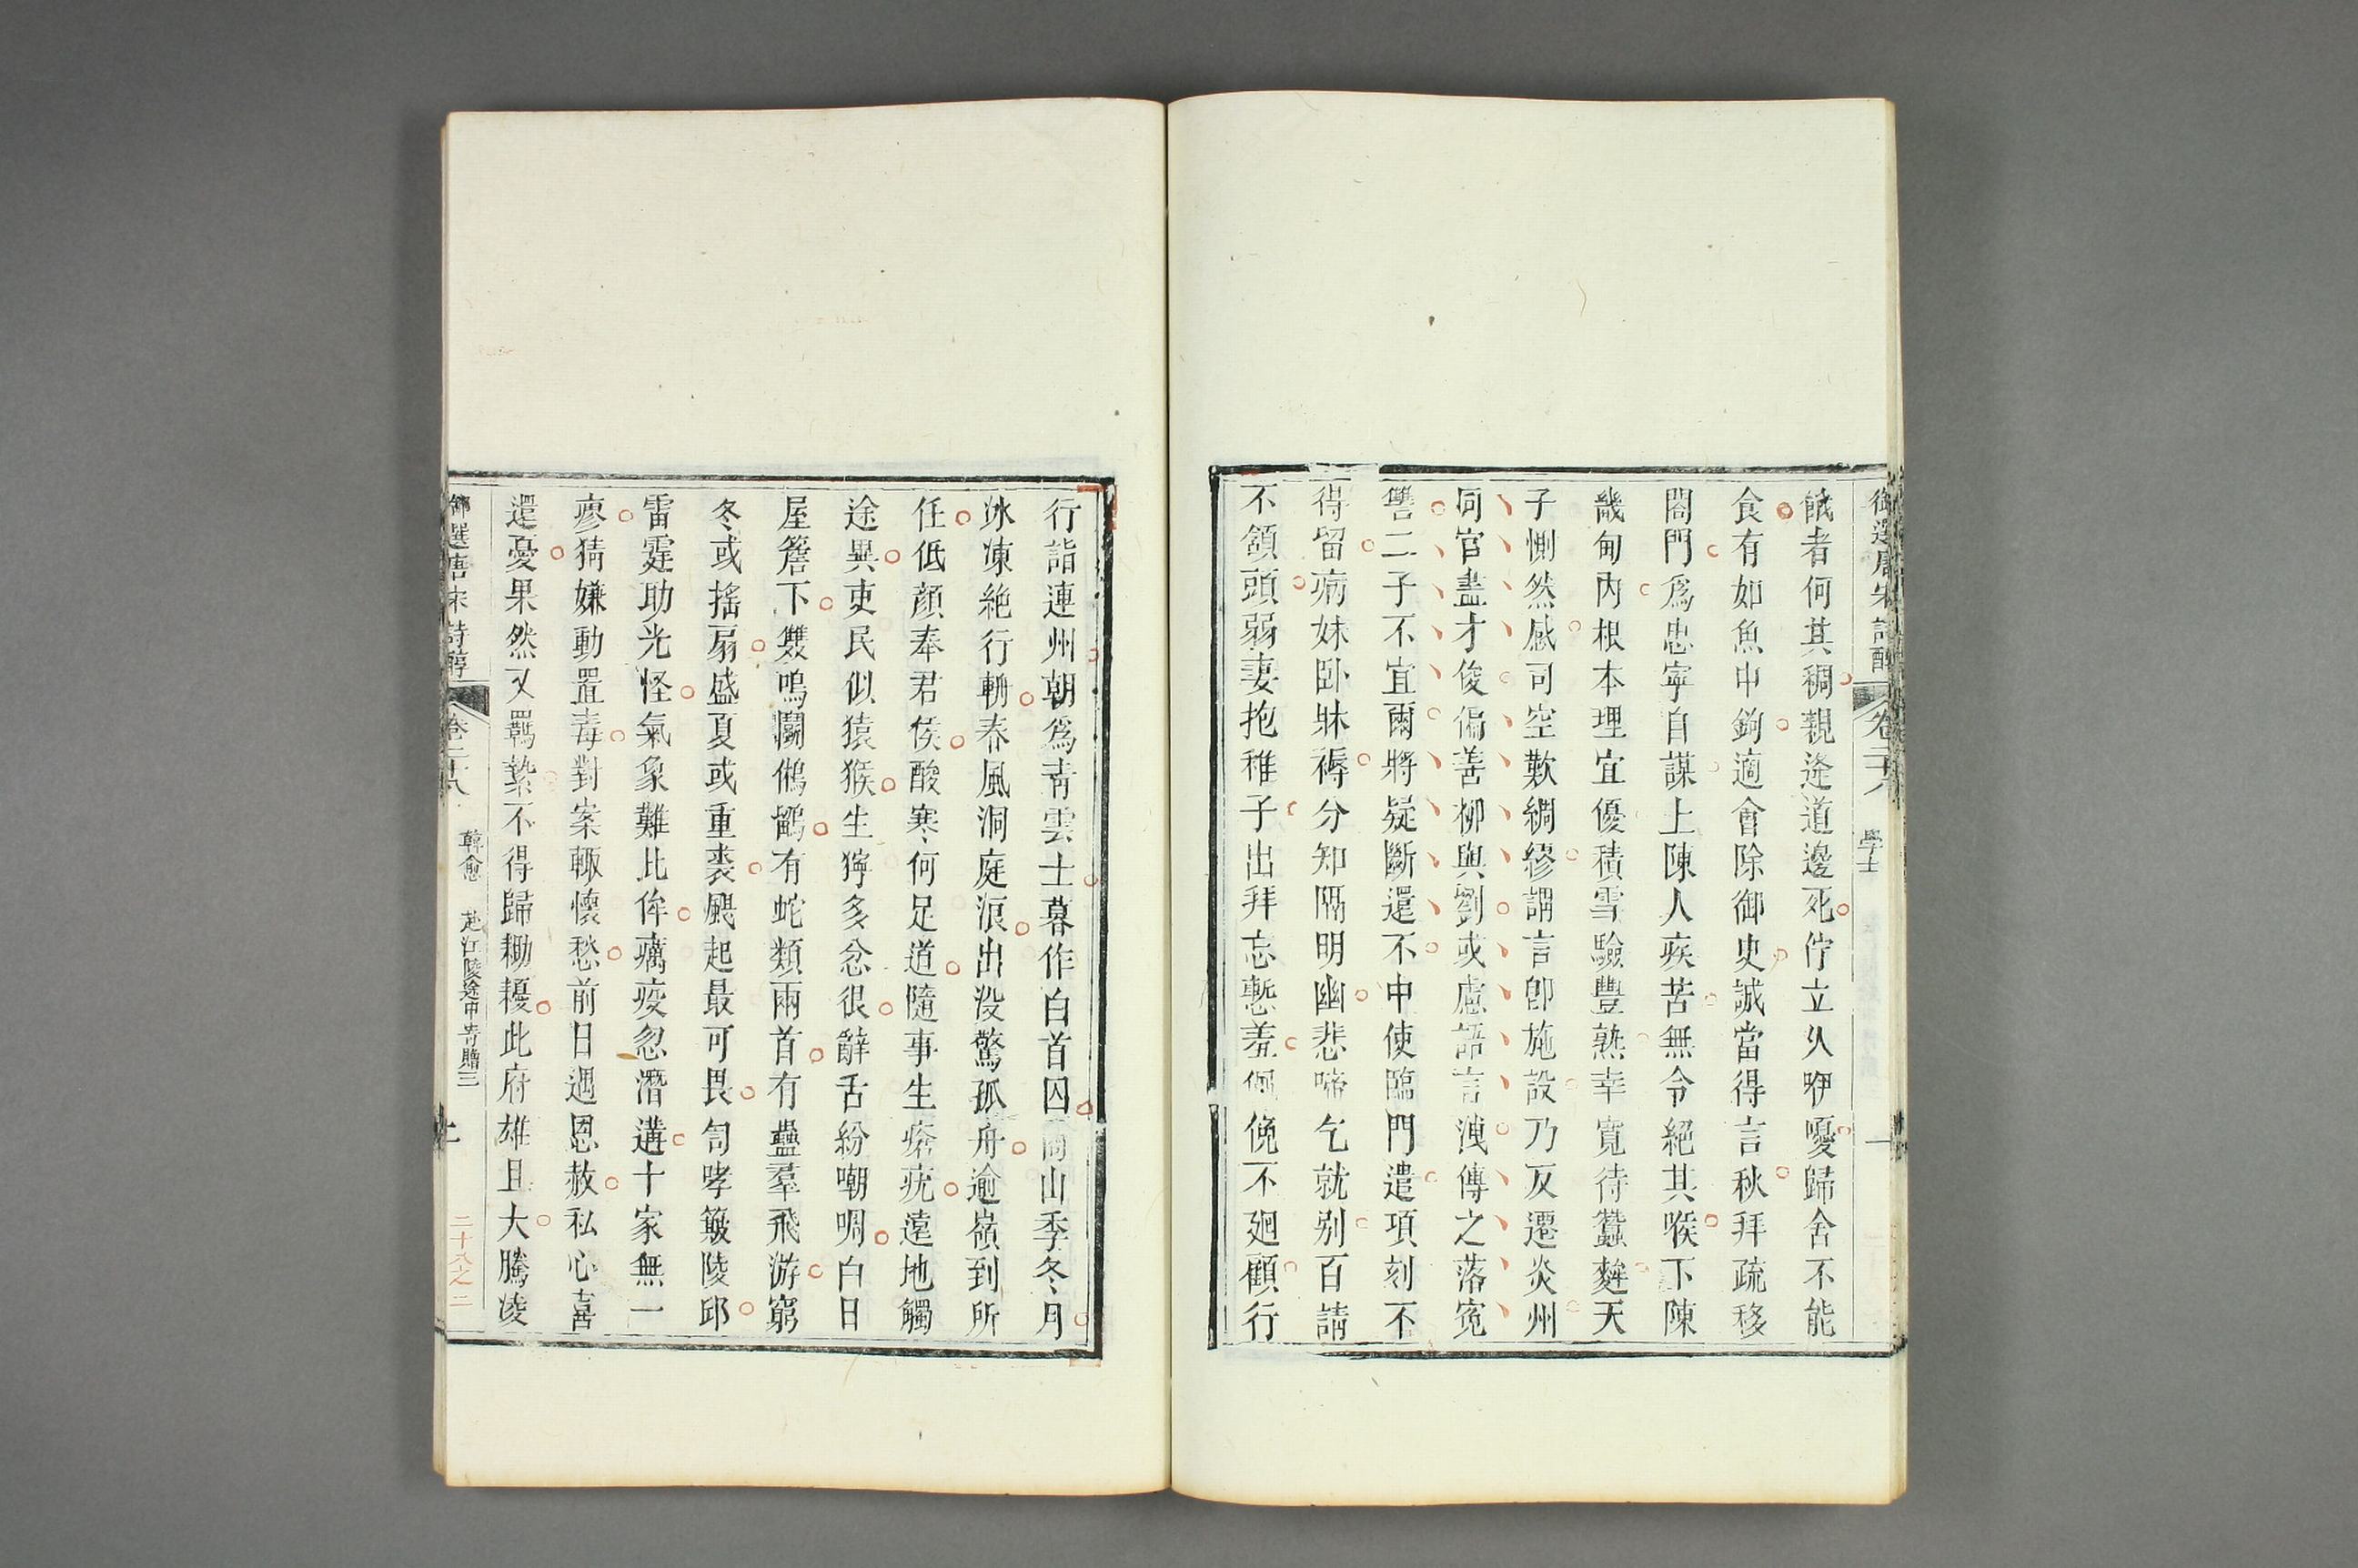 餓者何其稠親逢道邊死佇立久咿嚘歸舍不能
食有如魚中鉤適會除御史誠當得言秋拜疏移
閤門爲忠寧自謀上陳人疾苦無令絕其喉下陳
畿甸內根本理宜優積雪驗豐熟幸寬待蠶麰天
子惻然感司空歎綢繆謂言卽施設乃反遷炎州
同官盡才俊偏善柳與劉或慮語言洩傳之落冤
讐二子不宜爾將疑斷還不中使臨門遣頃刻不
得留病妹臥牀褥分知隔明幽悲啼乞就別百請
不頷頭弱妻抱稚子出拜忘慙羞僶俛不廻顧行
行詣連州朝爲青雲士暮作白首囚商山季冬月
冰凍絕行輈春風洞庭浪出沒驚孤舟逾嶺到所
任低顏奉君侯酸寒何足道隨事生瘡疣遠地觸
途異吏民似猿猴生獰多忿很辭舌紛嘲啁白日
屋簷下雙鳴鬭鵂鶹有蛇類兩首有蠱羣飛游窮
冬或搖扇盛夏或重裘颶起最可畏訇哮簸陵邱
雷霆助光怪氣象難比侔癘疫忽潛遘十家無一
瘳猜嫌動置毒對案輒懷愁前日遇恩赦私心喜
還憂果然又羈縶不得歸耡耰此府雄且大騰凌
御選唐宋詩醇 卷二十八 韓愈 赴江陵途中寄贈三 二十八之二